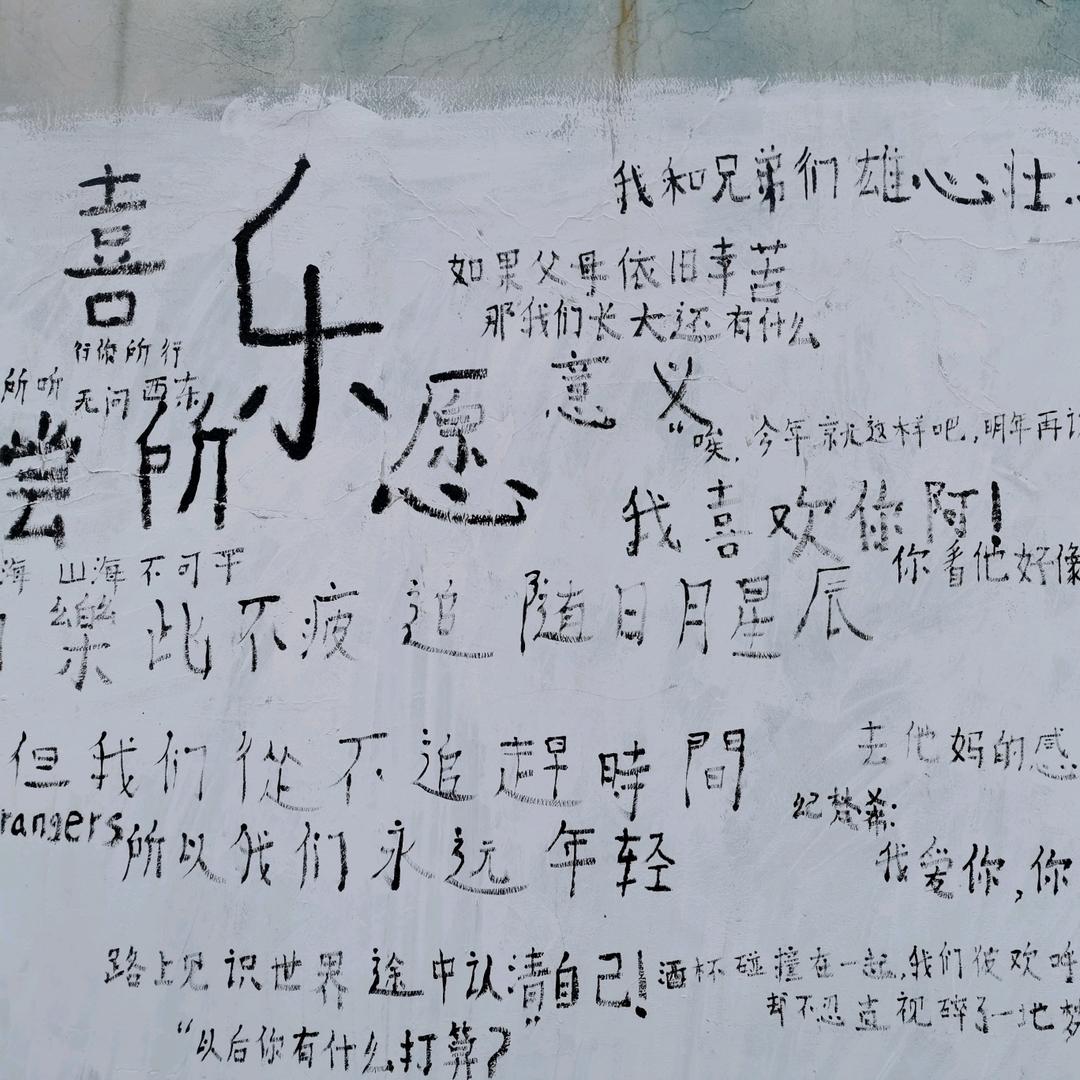 我和兄弟们雄心壮
喜乐
如果父母依旧幸苦
那我们长大还有什么
意义
行你所行
所听
无问西东
尝所愿
“唉，今年就这样吧，明年再
我喜欢你阿！
你看他好像
海 山海不可平
樂此不疲 追随日月星辰
但我们從不追趕時間
去他妈的感
rangers
纪梵希：
所以我们永远年轻
我爱你，你
路上见识世界 途中认清自己！
酒杯碰撞在一起，我们彼欢呼
却不忍直视碎了一地
“以后你有什么打算？”